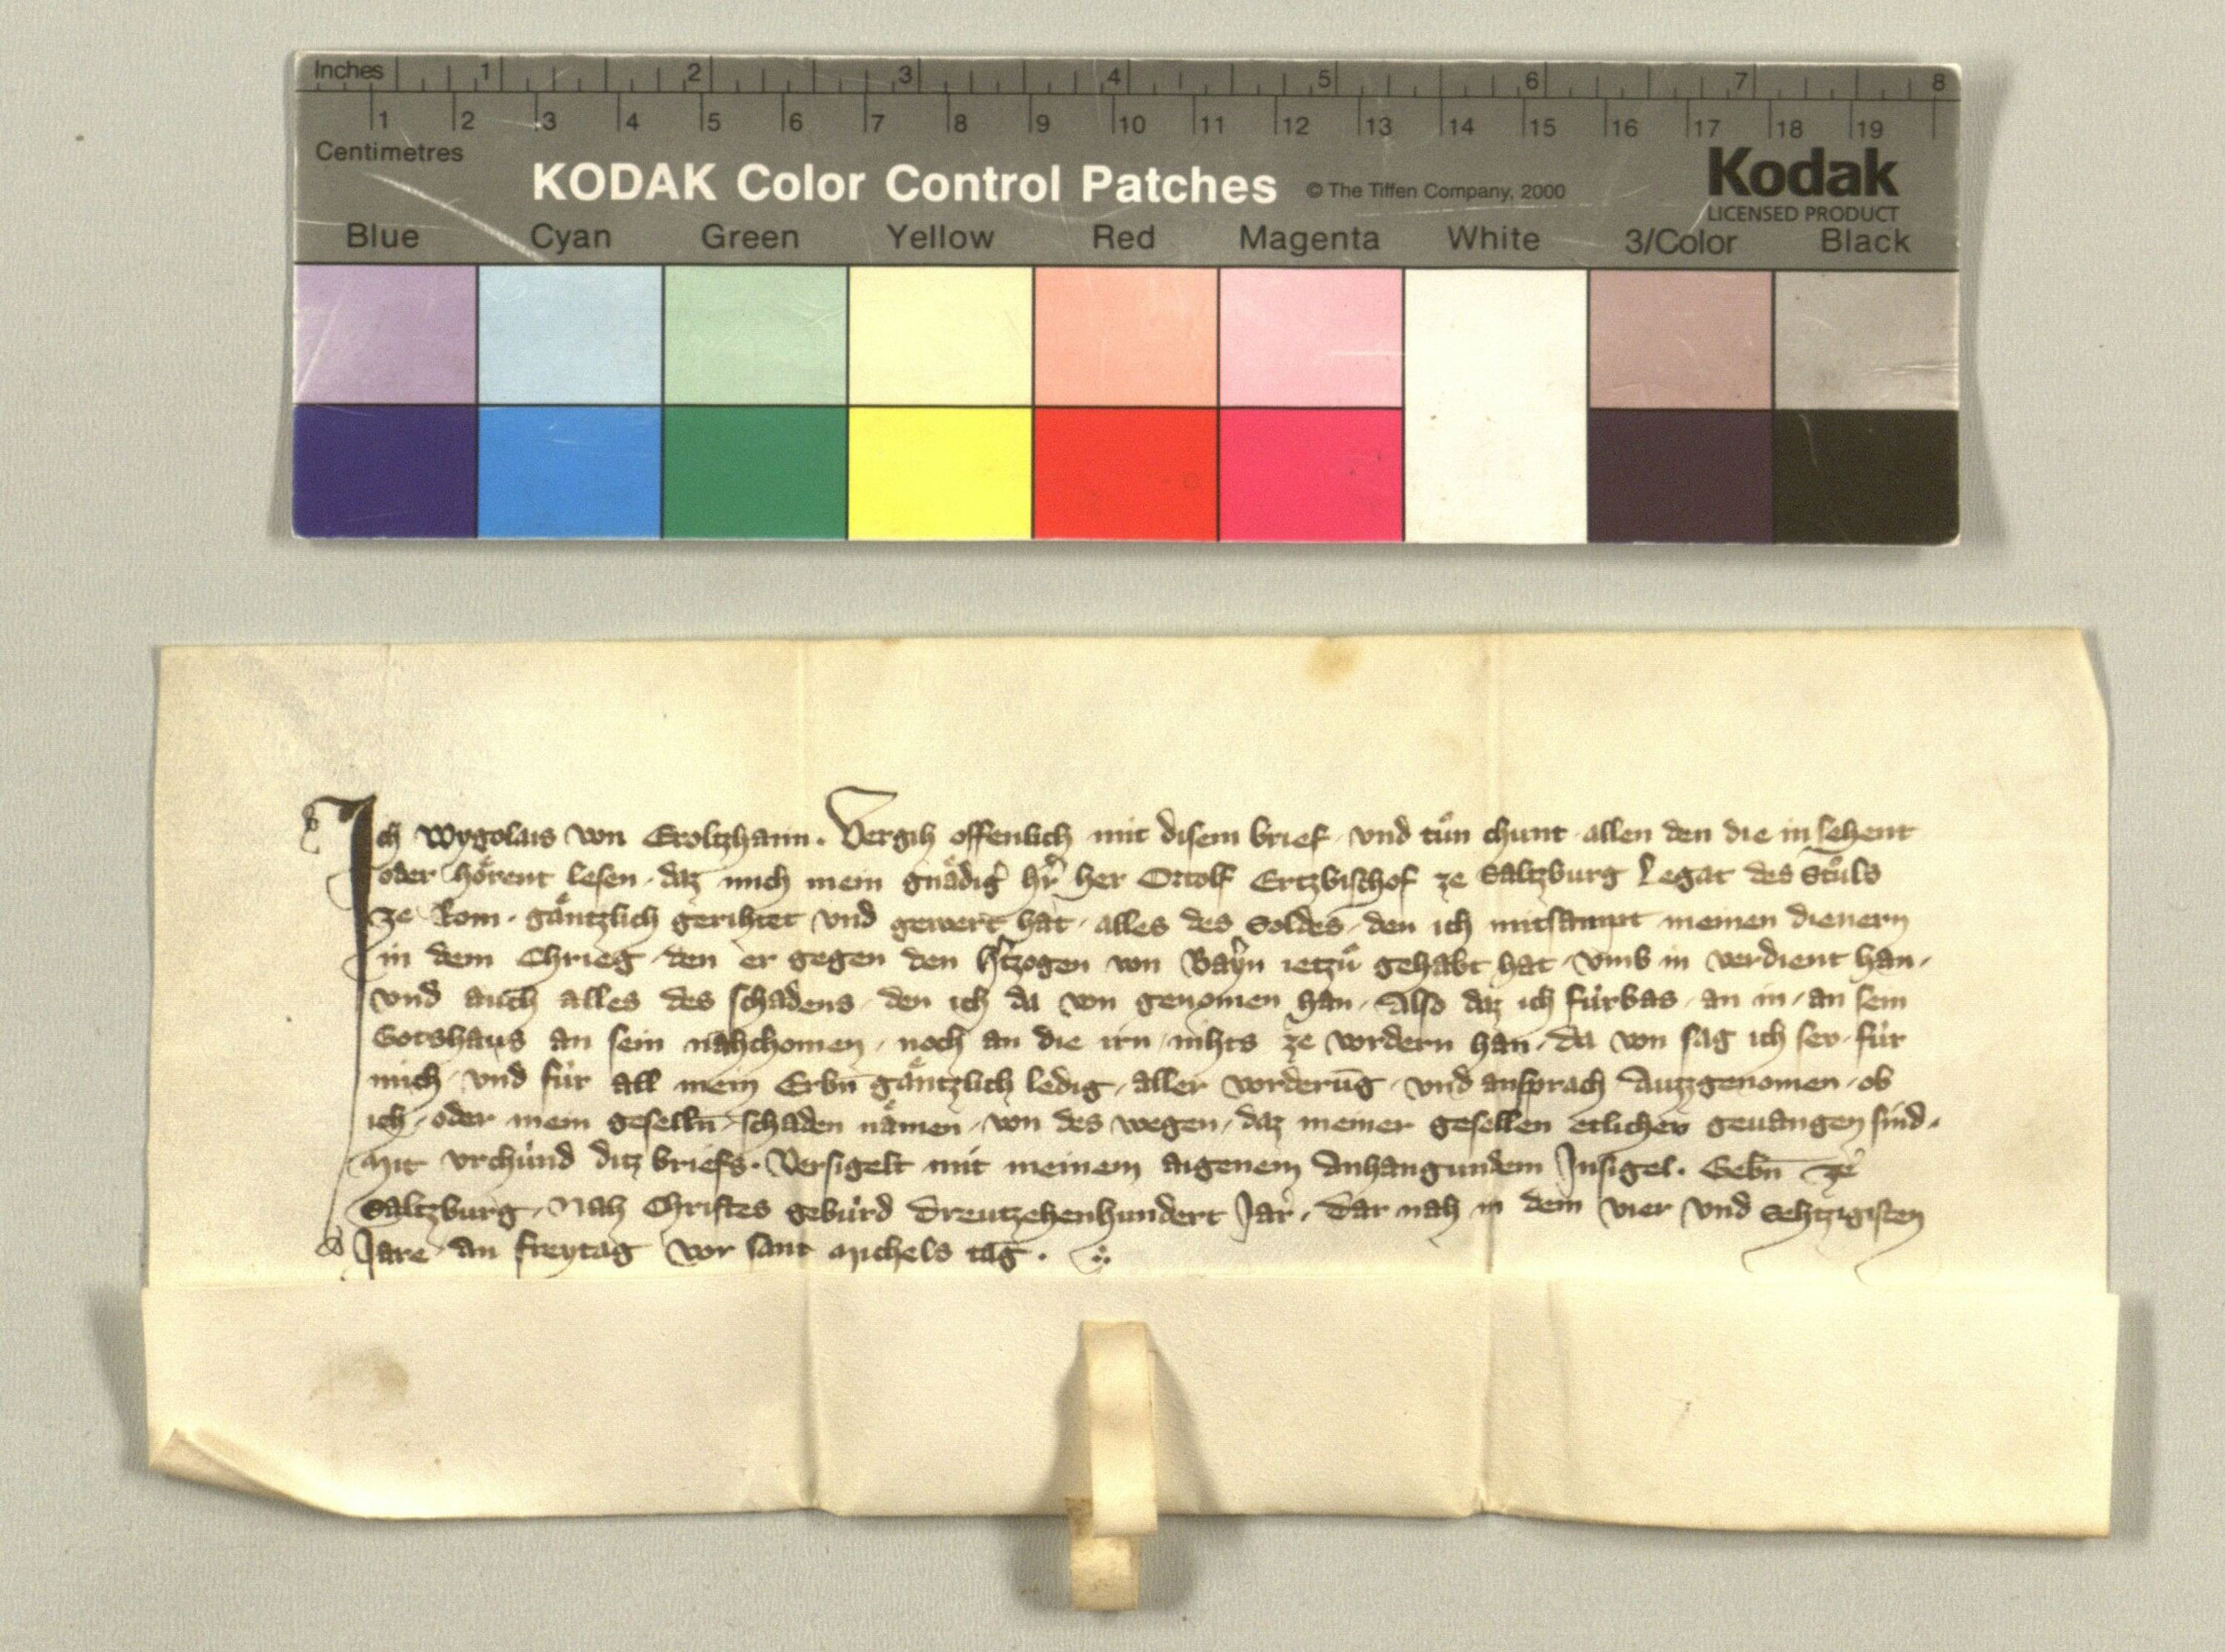 Inches 1 2 3 4 5 6 7 8
1 2 3 4 5 6 7 8 9 10 11 12 13 14 15 16 17 18 19
Centimetres
KODAK Color Control Patches © The Tiffen Company, 2000
Kodak
LICENSED PRODUCT
Blue Cyan Green Yellow Red Magenta White 3/Color Black
Ich Wygolais von Eroltzhaim. Vergih offenlich mit disem brief und tůn chunt allen den die in sehent
oder hoͤrent lesen. daz mich mein gnaͤdig hr̄ her Ortolf Ertzbischof ze Saltzburg Legat des Stůls
ze Rom. gaͤntzlich gerihtet und gewert hat. alles des Soldes. den ich mitsampt meinen dienern
in dem Chrieg. den er gegen den hˀtzogen von Bayrn ietzů gehabt hat. umb in verdient han.
und auch alles des schadens. den ich da von genomen han. Also daz ich fürbas. an in. an sein
Gotshaus an sein nahchomen. noch an die irn. nihts ze vordern han. da von sag ich sev. für
mich und für all mein Erbn̄ gaͤntzlich ledig. aller vorderūg und ansprach Auzzgenomen. ob
ich. oder mein geselln̄ schaden naͤmen. von des wegen. daz meiner gesellen etlicher gevangen sind.
Mit vrchünd ditz briefs. Versigelt mit meinem aigenem Anhangundem Insigel. Gebn̄ ze
Saltzburg. Nah Christes gebürd Dreutzehenhundert Jar. Dar nah in dem Vier und Sehtzigisten
Jare. An freytag vor sant Michels tag.